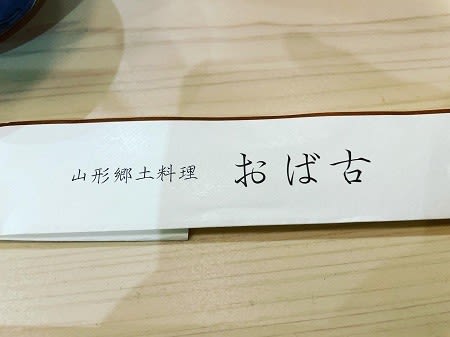 山形郷土料理 おば古